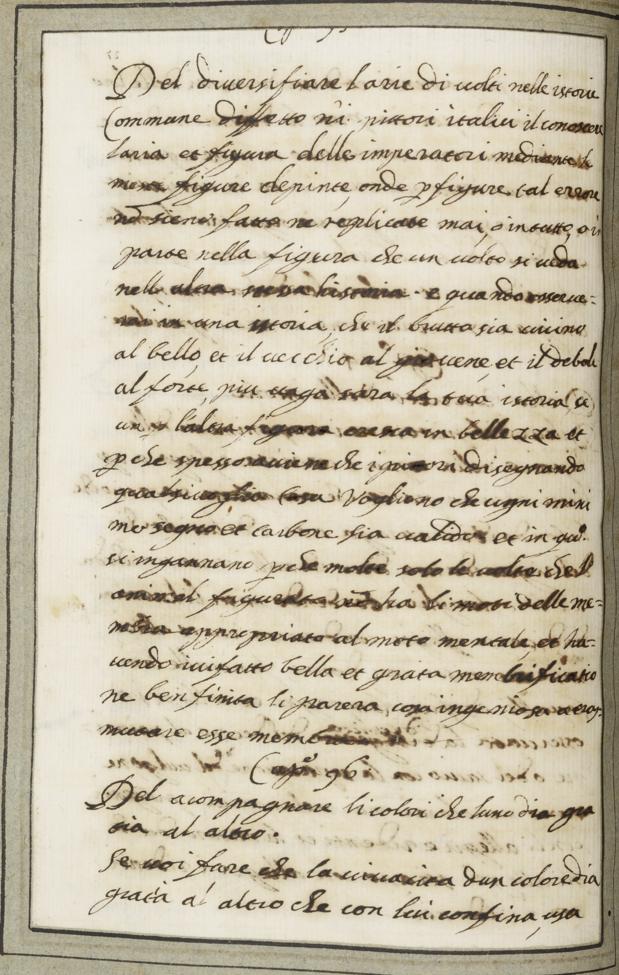 Del diversifiare l arie di volti nelle istorie
Commune diffetto n'i pittori italici il conoscere
laria et figura delle imperatori mediante le
figure depinte, onde p figure tal errore
nō sieno fatte ne replicate mai, o in tutto, o in
parte nella figura che un volto si veda
nell altra historia. e quando osserve-
rai in una istoria, che il brutto sia vicino
al bello, et il vecchio al giovene, et il debole
al forte, piu vaga sara la tua istoria, se
un l'altra figura cresca in bellezza et
p che spesso aviene che i pittori disegnando
qualsivoglia cosa Vogliono che ogni mini
mo segno et carbone sia valido, et in qu°
si ingannano, p che molte sono le volte che l
animal figurato nō ha li moti delle me-
mbra appropriato al moto mentale et ha-
vendo ivi fatto bella et grata membrificatio
ne ben finita li parera, cosa ingeniosa a tras-
mutare esse membra
Cap° 96
Del acompagnare li colori che luno dia gra
tia al altro.
Se voi fare che la vivacita dun colore dia
gratia al altro che con lui confina, usa